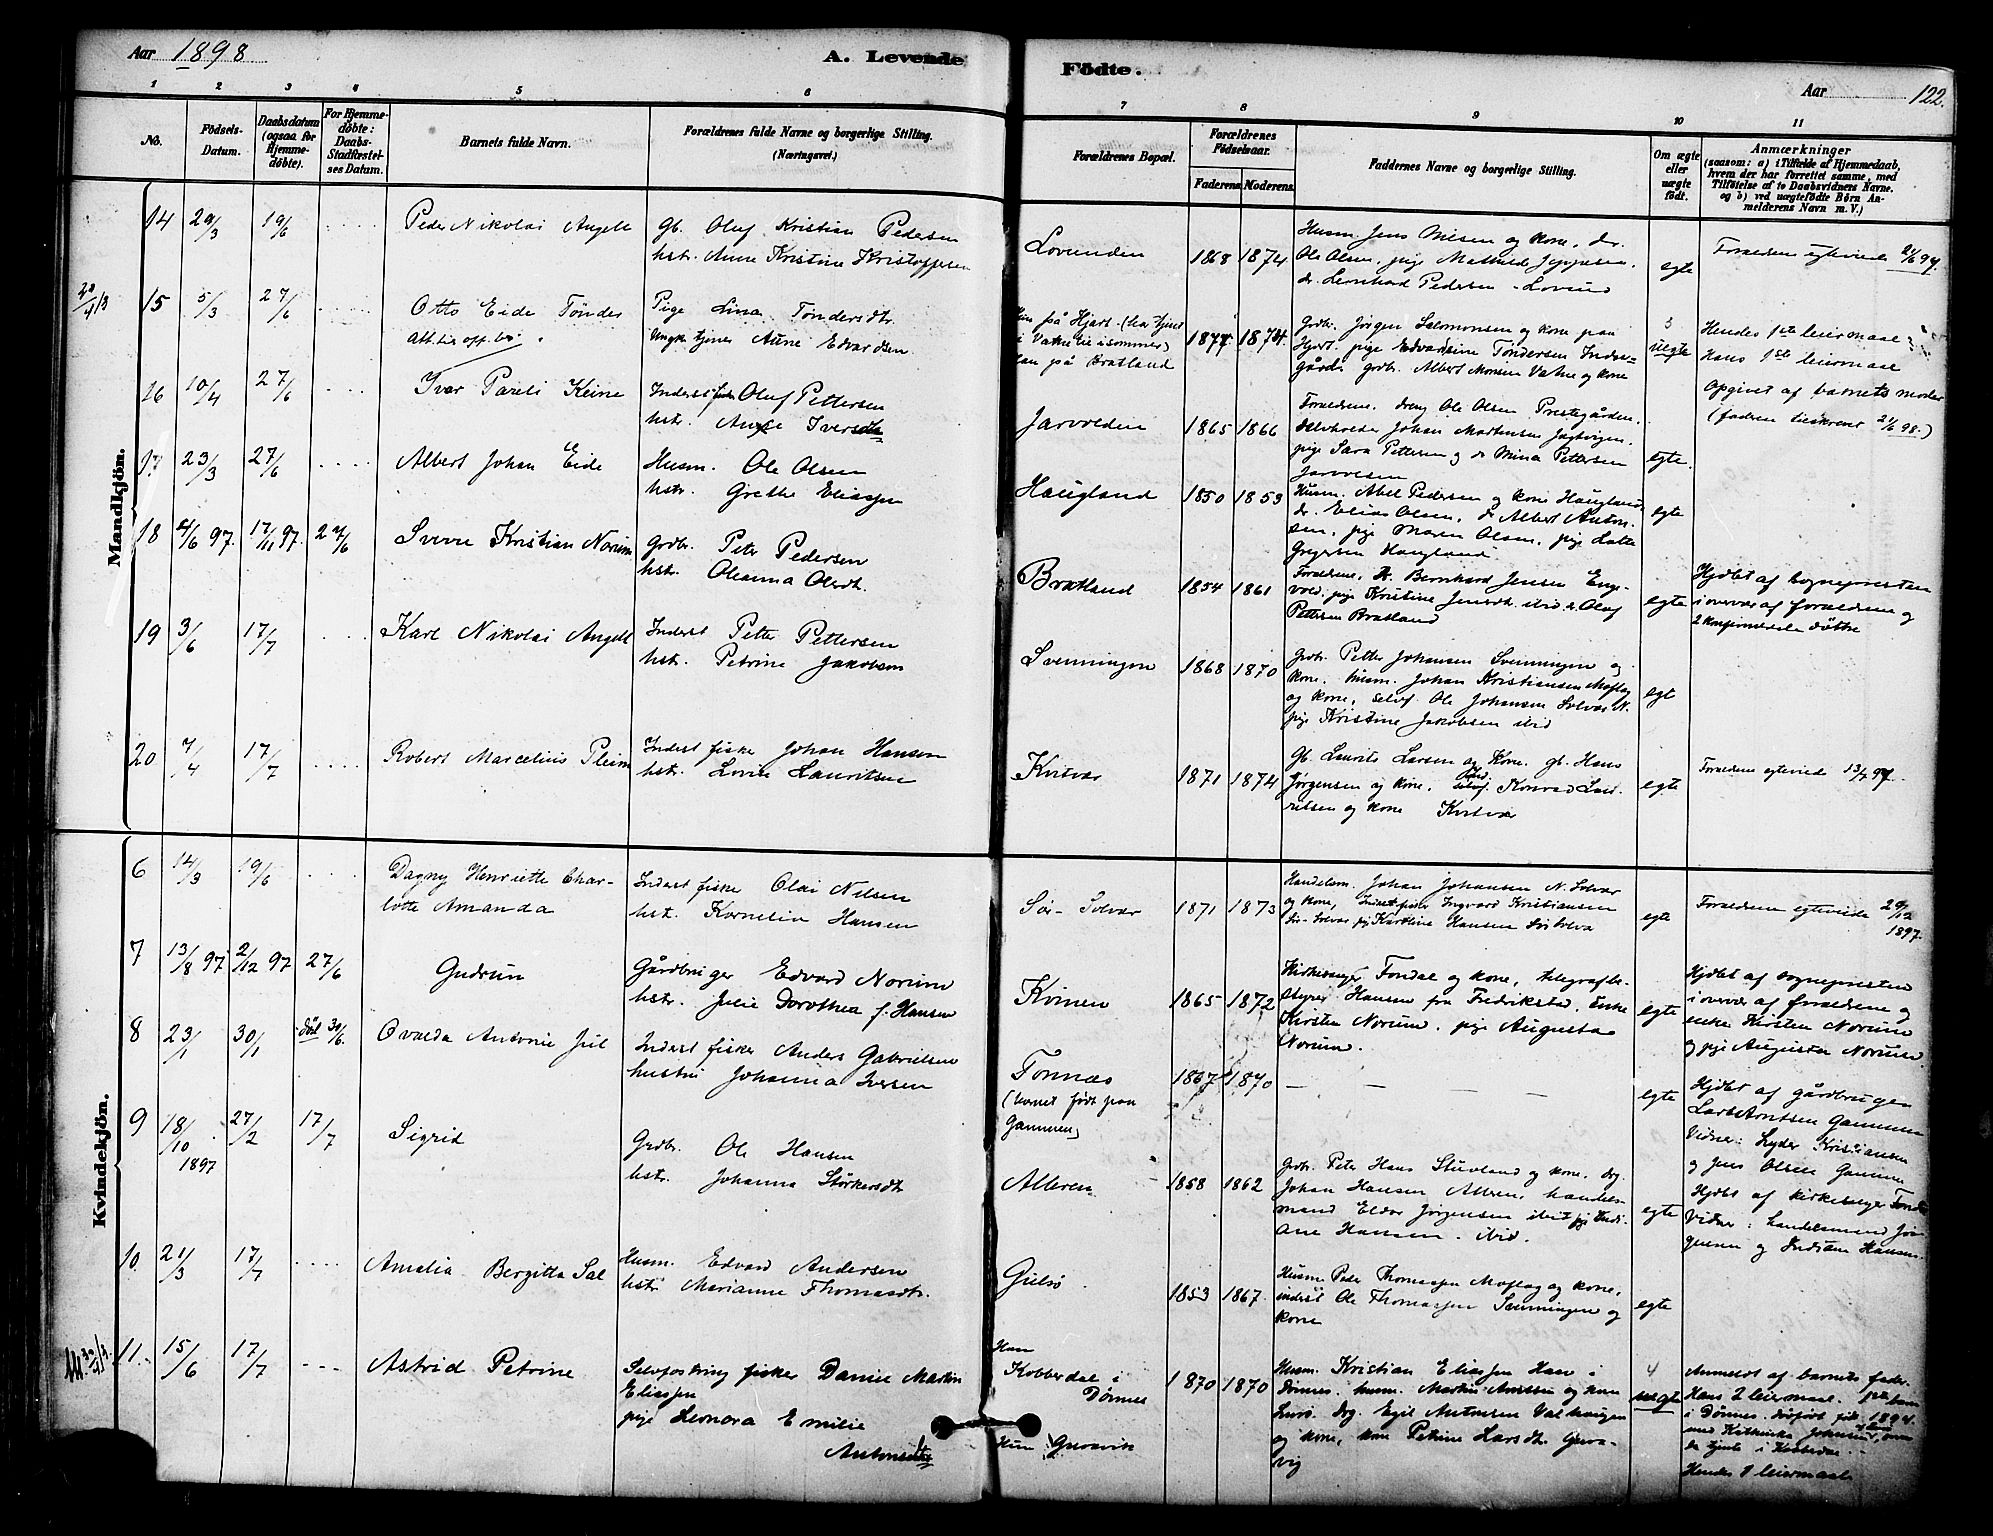 Aar 1898
A. Levende Födte.
Aar 122.
1 2 3 4 5 6 7 8 9 10 11
No.
Födsels-Datum.
Daabsdatum (ogsaa for Hjemme-døbte).
For Hjemme-døbte: Daabs-Stadfæstel-ses Datum.
Barnets fulde Navn.
Forældrenes fulde Navne og borgerlige Stilling.
(Næringsvei.)
Forældrenes Bopæl.
Forældrenes Födselsaar.
Faderens. Moderens.
Faddernes Navne og borgerlige Stilling.
Om ægte eller uægte født.
Anmærkninger
(saasom: a) i Tilfælde af Hjemmedaab, hvem der har forrettet samme, med Tilføielse af to Daabsvidners Navne. og b) ved uægtefødte Børn Anmelderens Navn m. V.)
Mandkjön.
14 29/3 19/6 Peder Nikolai Angell
Gb. Oluf Kristian Pedersen
hstr. Anne Kristine Kristoffersen
Lovunden 1868 1874
Husm. Jens Nilsen og kone, dr.
Ole Olsen, pige Mathilde Jeppesen,
dr. Leonhard Pedersen - Lovund
egte
Forældrene egteviede 21/6 97.
15 5/3 27/6 Otto Eide Tönder
Pige Lina Töndersdtr.
Ungk. tjener Aune Edvardsen
på Hjart. (har tjent
i sommer)
Han på Bratland
1877 1874
Grdb. Jörgen Salomonsen og kone paa
Hjart. pige Edvardine Töndersen Indre-
gårds grdb. Albert Monsen Vatne og kone
uegte
Hendes 1ste leiermaal
Hans 1ste leiermaal
Opgivet af barnets moder
(fadren tilskrevet 21/6 98.)
16 10/4 27/6 Ivar Pareli Keine
Inderst fisker Oluf Pettersen
hstr. Anne Iversdtr
Jarvolden 1865 1866
Forældrene, dreng Ole Olsen Prestegården.
Johan Martinsen
pige Sara Pettersen og dr Mina Pettersen
egte.
17 23/3 27/6 Albert Johan Eide
Husm. Ole Olsen
hstr. Grethe Eliassen
Haugland 1850 1853
Husm. Abel Pedersen og kone Haugland,
dr. Elias Olsen, dr Albert Anton-
sen, pige Maren Olsen, pige Lotte
Gregersen Haugland
egte
18 4/6 97. 17/11 97. 27/6 Sverre Kristian Norum
Grdb. Peter Pedersen
hstr. Oleanna Olsdt.
Bratland 1854 1861
Forældrene, Hr. Bernhard Jensen Eng-
vold, pige Kristine Jensdt. ibid & Olaf
Pettersen Bratland
egte
Hjdbt af sogneprestem
i overvær af forældrene og
2 konfirmerede døttre
19 3/6 17/7 Karl Nikolai Angell
Inderst Peter Pettersen
hstr. Petrine Jakobsen
Svenningen 1868 1870
Grdb. Petter Johansen Svenningen og
kone, husm. Johan Kristiansen Moflag
og kone, selvf. Ole Johansen Solvær N.
pige Kristine Jakobsen ibid
egt
20 7/4 17/7 Robert Marcelius Pleim
Inderst fisker Johan Hansen
hstr. Lovise Lauritsen
Kvitvær 1871 1874
Gb. Laurits Larsen og kone. gb. Hans
Jörgensen og kone, selvf. Konrad Lau-
ritsen og kone Kvitvær
egte
Forældrene egteviede 13/7 97.
Kvindekjön.
6 14/3 19/6 Dagny Henriette Char-
lotte Amanda
Inderst fisker Olai Nilsen
hst. Kornelia Hansen
Sör-Solvær 1871 1873
Handelsm. Johan Johansen N. Solvær
og kone, Inderst fisker Ingvard Kristiansen
Sör-Solvær pige Karoline Hansen
egte
Forældrene egteviede 29/12
1897.
7 13/8 97 2/12 97 27/6 Gudrun
Gårdbruger Edvard Norum
hstr. Julie Dorothea f. Hansen
Kvinen 1865 1872
Kirkesanger Fondal og kone, telegrafbe-
styrer Hansen fra Fredrikstad, Enke
Kirsten Norum, pige Augusta
Norum.
egte
Hjdbt af sognepresten
i overvær af forældrene og
enke Kirsten Norum
og pige Augusta Norum
8 23/1 30/1 död 30/6. Ovaeda Antonie Jul
Inderst fisker Anders Gabrielsen
hustru Johanna Iversen
Tonnæs
(barnet født paa
Gammen)
1867 1870
egte
Hjdbt af gårdbruger
Lars Arntsen Gammen
Vidner: Lyder Kristiansen
og Jens Olsen Gammen
9 18/10 1897 27/2 17/7 Sigrid
Grdb. Ole Hansen
hstr. Johanna Störkersdtr
Alderen 1858 1862
Grdb. Peter Hans Stuvland og kone, drg.
Johan Hansen Aldren, handels-
mand Eldor Jörgensen ibid pige Indi-
ane Hansen. ibid.
egte
Hjdbt af kirkesanger Fondal
Vidner: handelsmand Jör-
gensen og Indiane Hansen.
10 21/3 17/7 Amalia Bergitta Sal
Husm. Edvard Andersen
hstr Marianne Thomasdtr.
Gulsö 1853 1867.
Husm Peder Thomassen Moflag og kone,
inderst Ole Thomassen Svenningen og
kone
egte
11. 15/6 17/7 Astrid Petrine
Selvfostring fisker Daniel Martin
Eliassen
pige Leonora Emilie
Antonsdtr
Han
Kobberdal i
Dönnes
Hun
1870 1870
Husm. Kristian Eliassen Haav i
Dönnes. husm. Martin Arntsen og kone
Lurö. drg. Egil Antonsen Valhaugen
og kone, kone Petrine Larsdt.
uegte
Anmeldt af barnets fader.
Hans 2 leiermaal.
i Dönnes. 1894.
Hendes 1 leiermaal